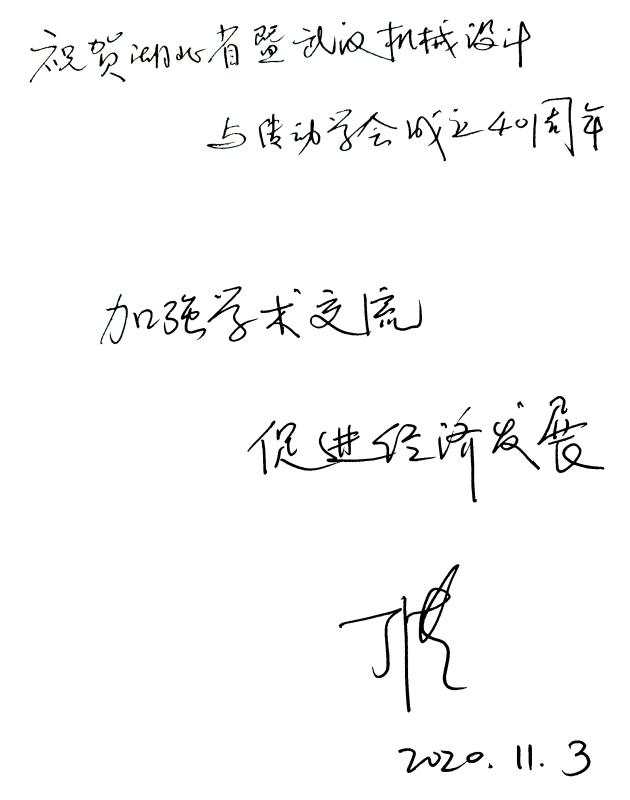 祝贺湖北省暨武汉机械设计
与传动学会成立40周年
加强学术交流
促进经济发展
2020.11.3